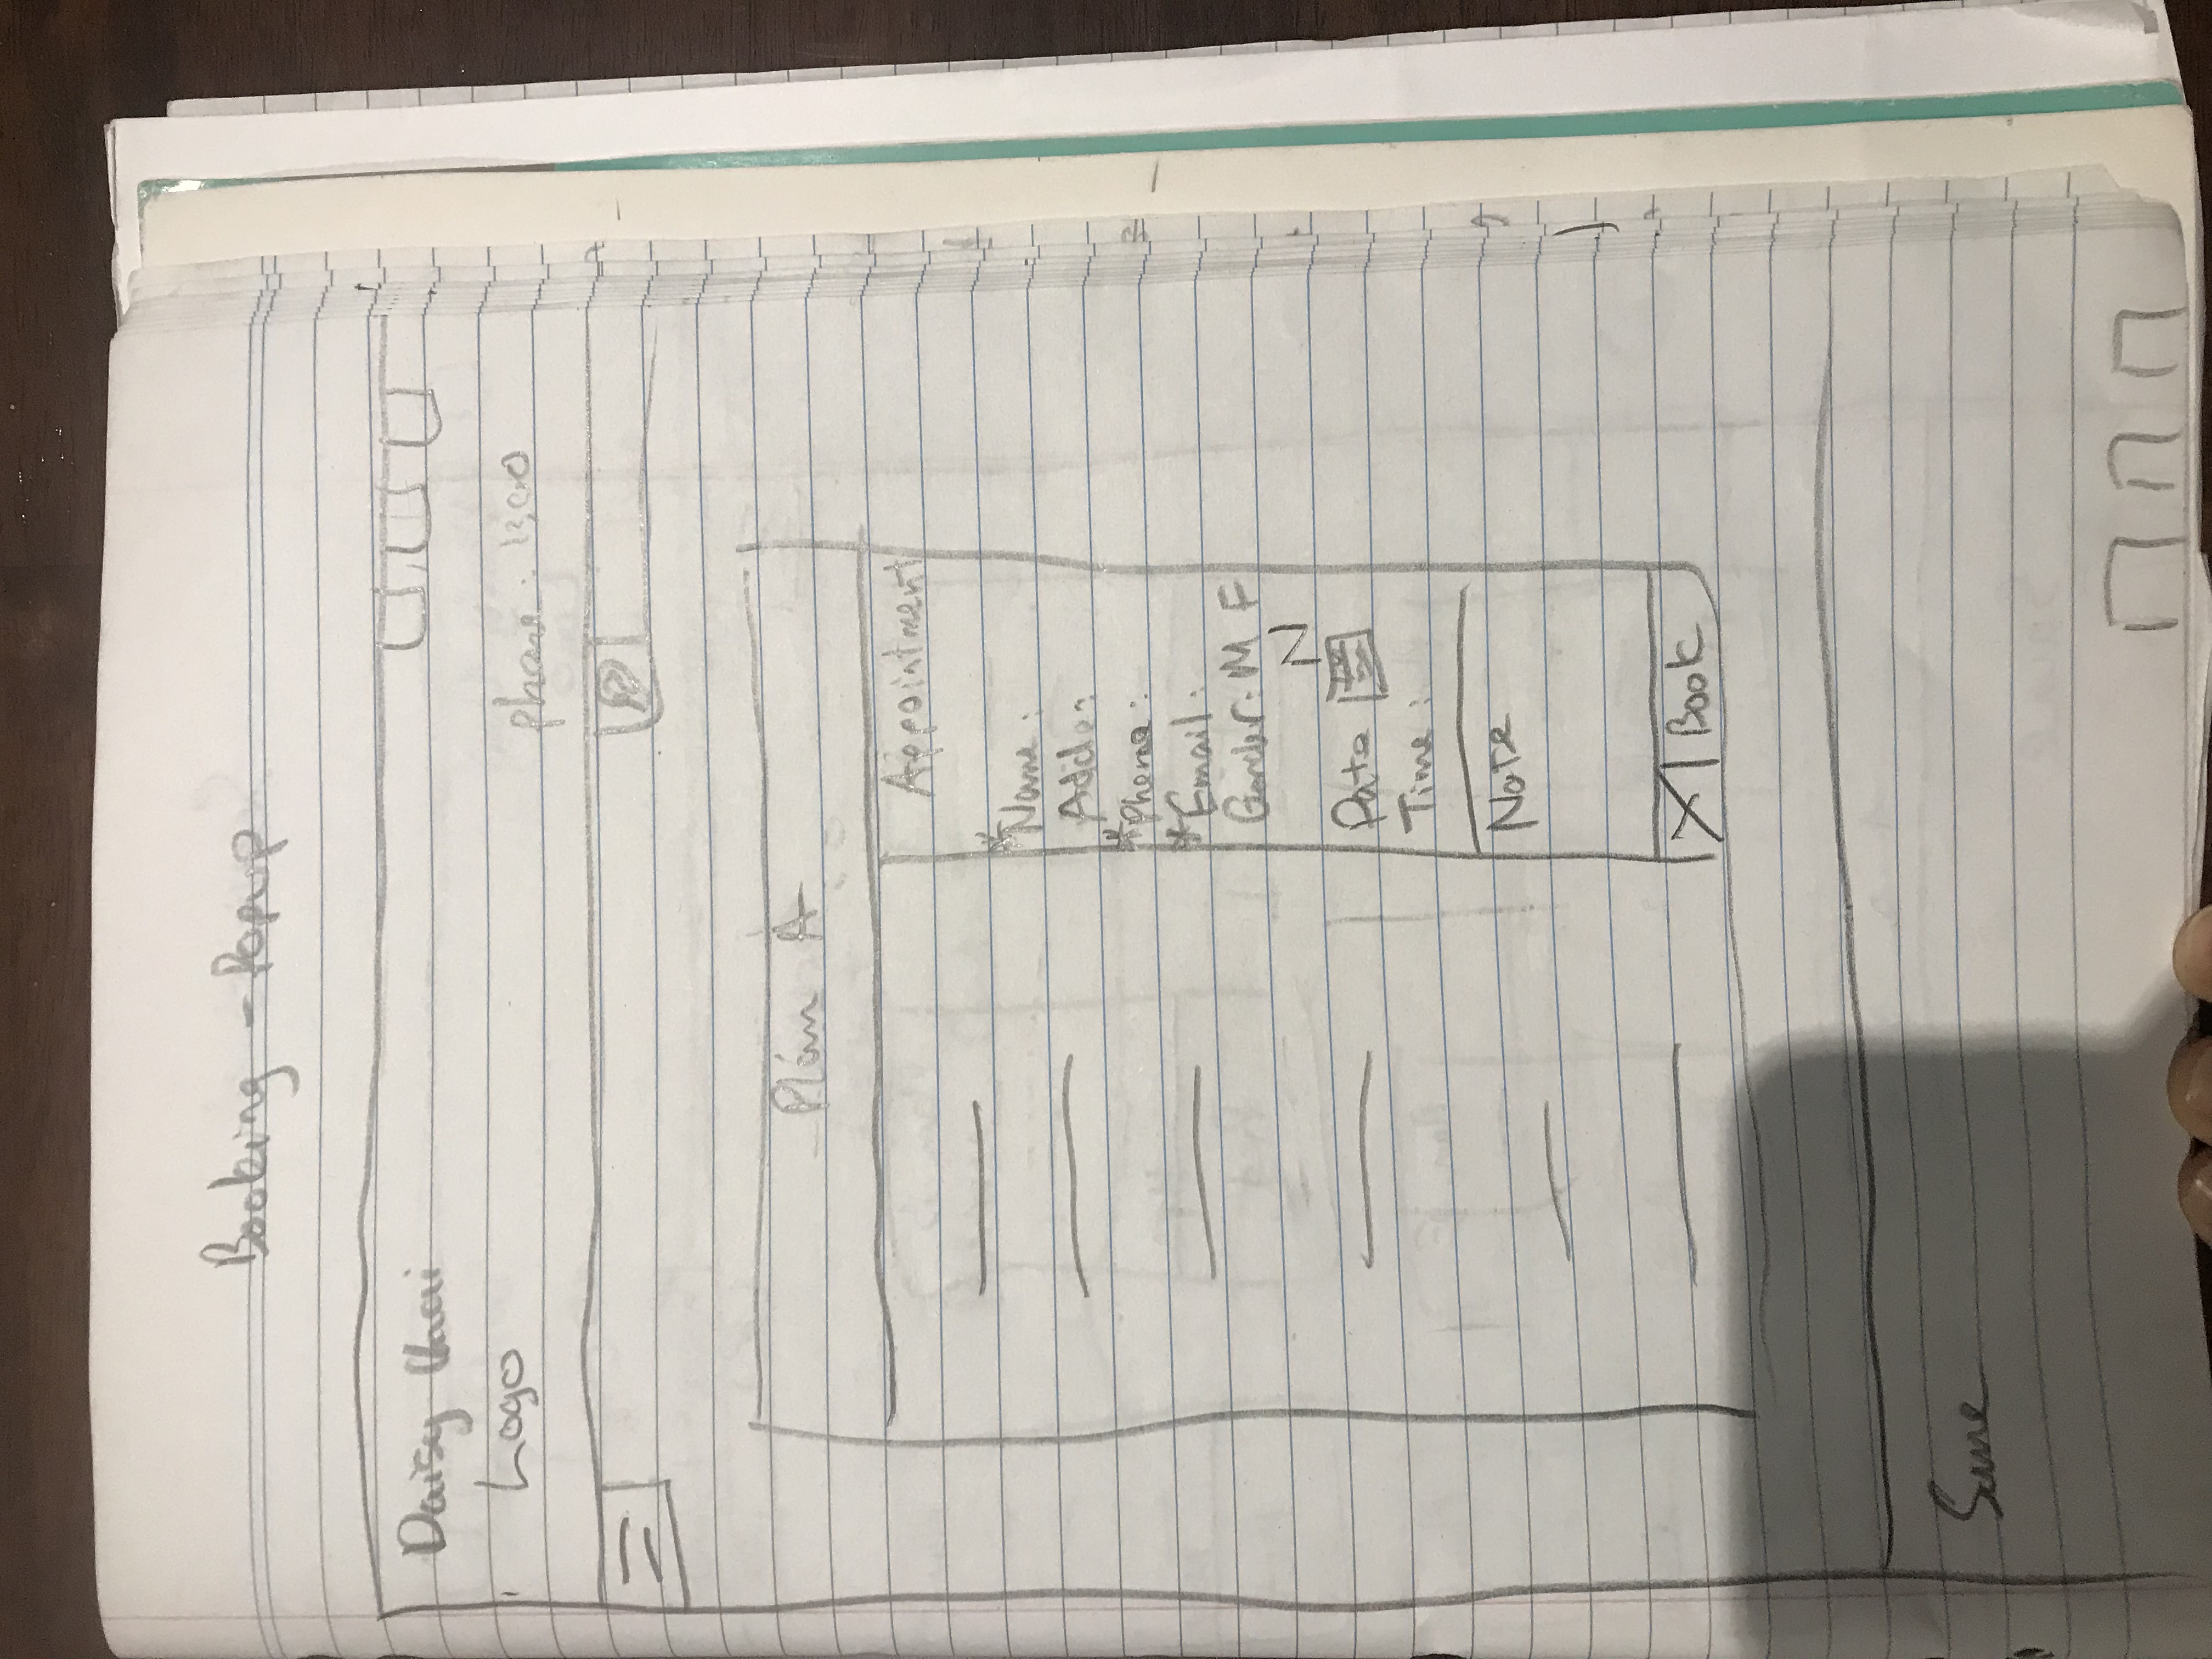 Booking - Popup
Daisy
Logo
phone: 1300
Plan A
Appointment
*Name:
Add:
*Phone:
*Email:
Gender: M F
N
Date
Time:
Note
X Book
Same